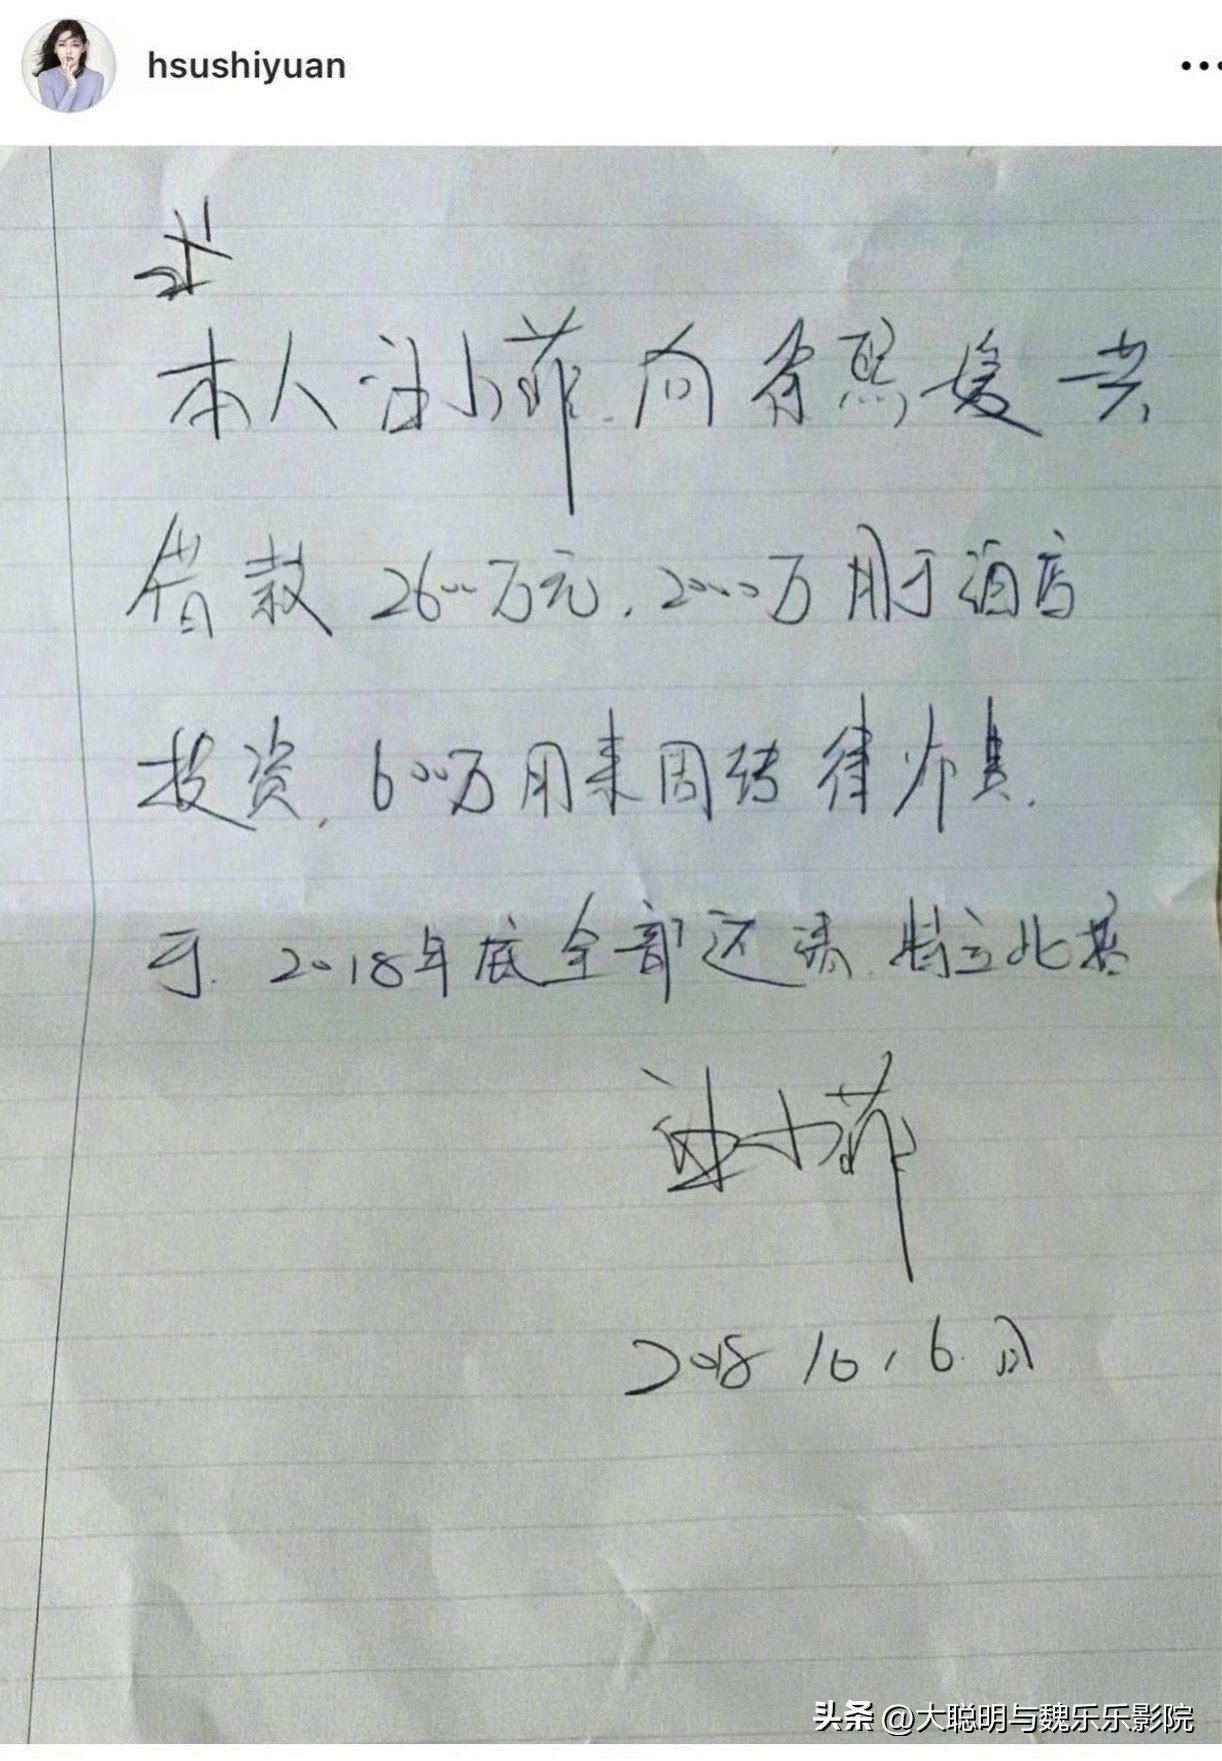 hsushiyuan
本人汪小菲.向徐熙媛共
借款 2600万元.2000万用于酒店
投资.600万用来周转律师费.
于.2018年底全部还清.特立此据
汪小菲
2018 10.6.
头条 @大聪明与魏乐乐影院